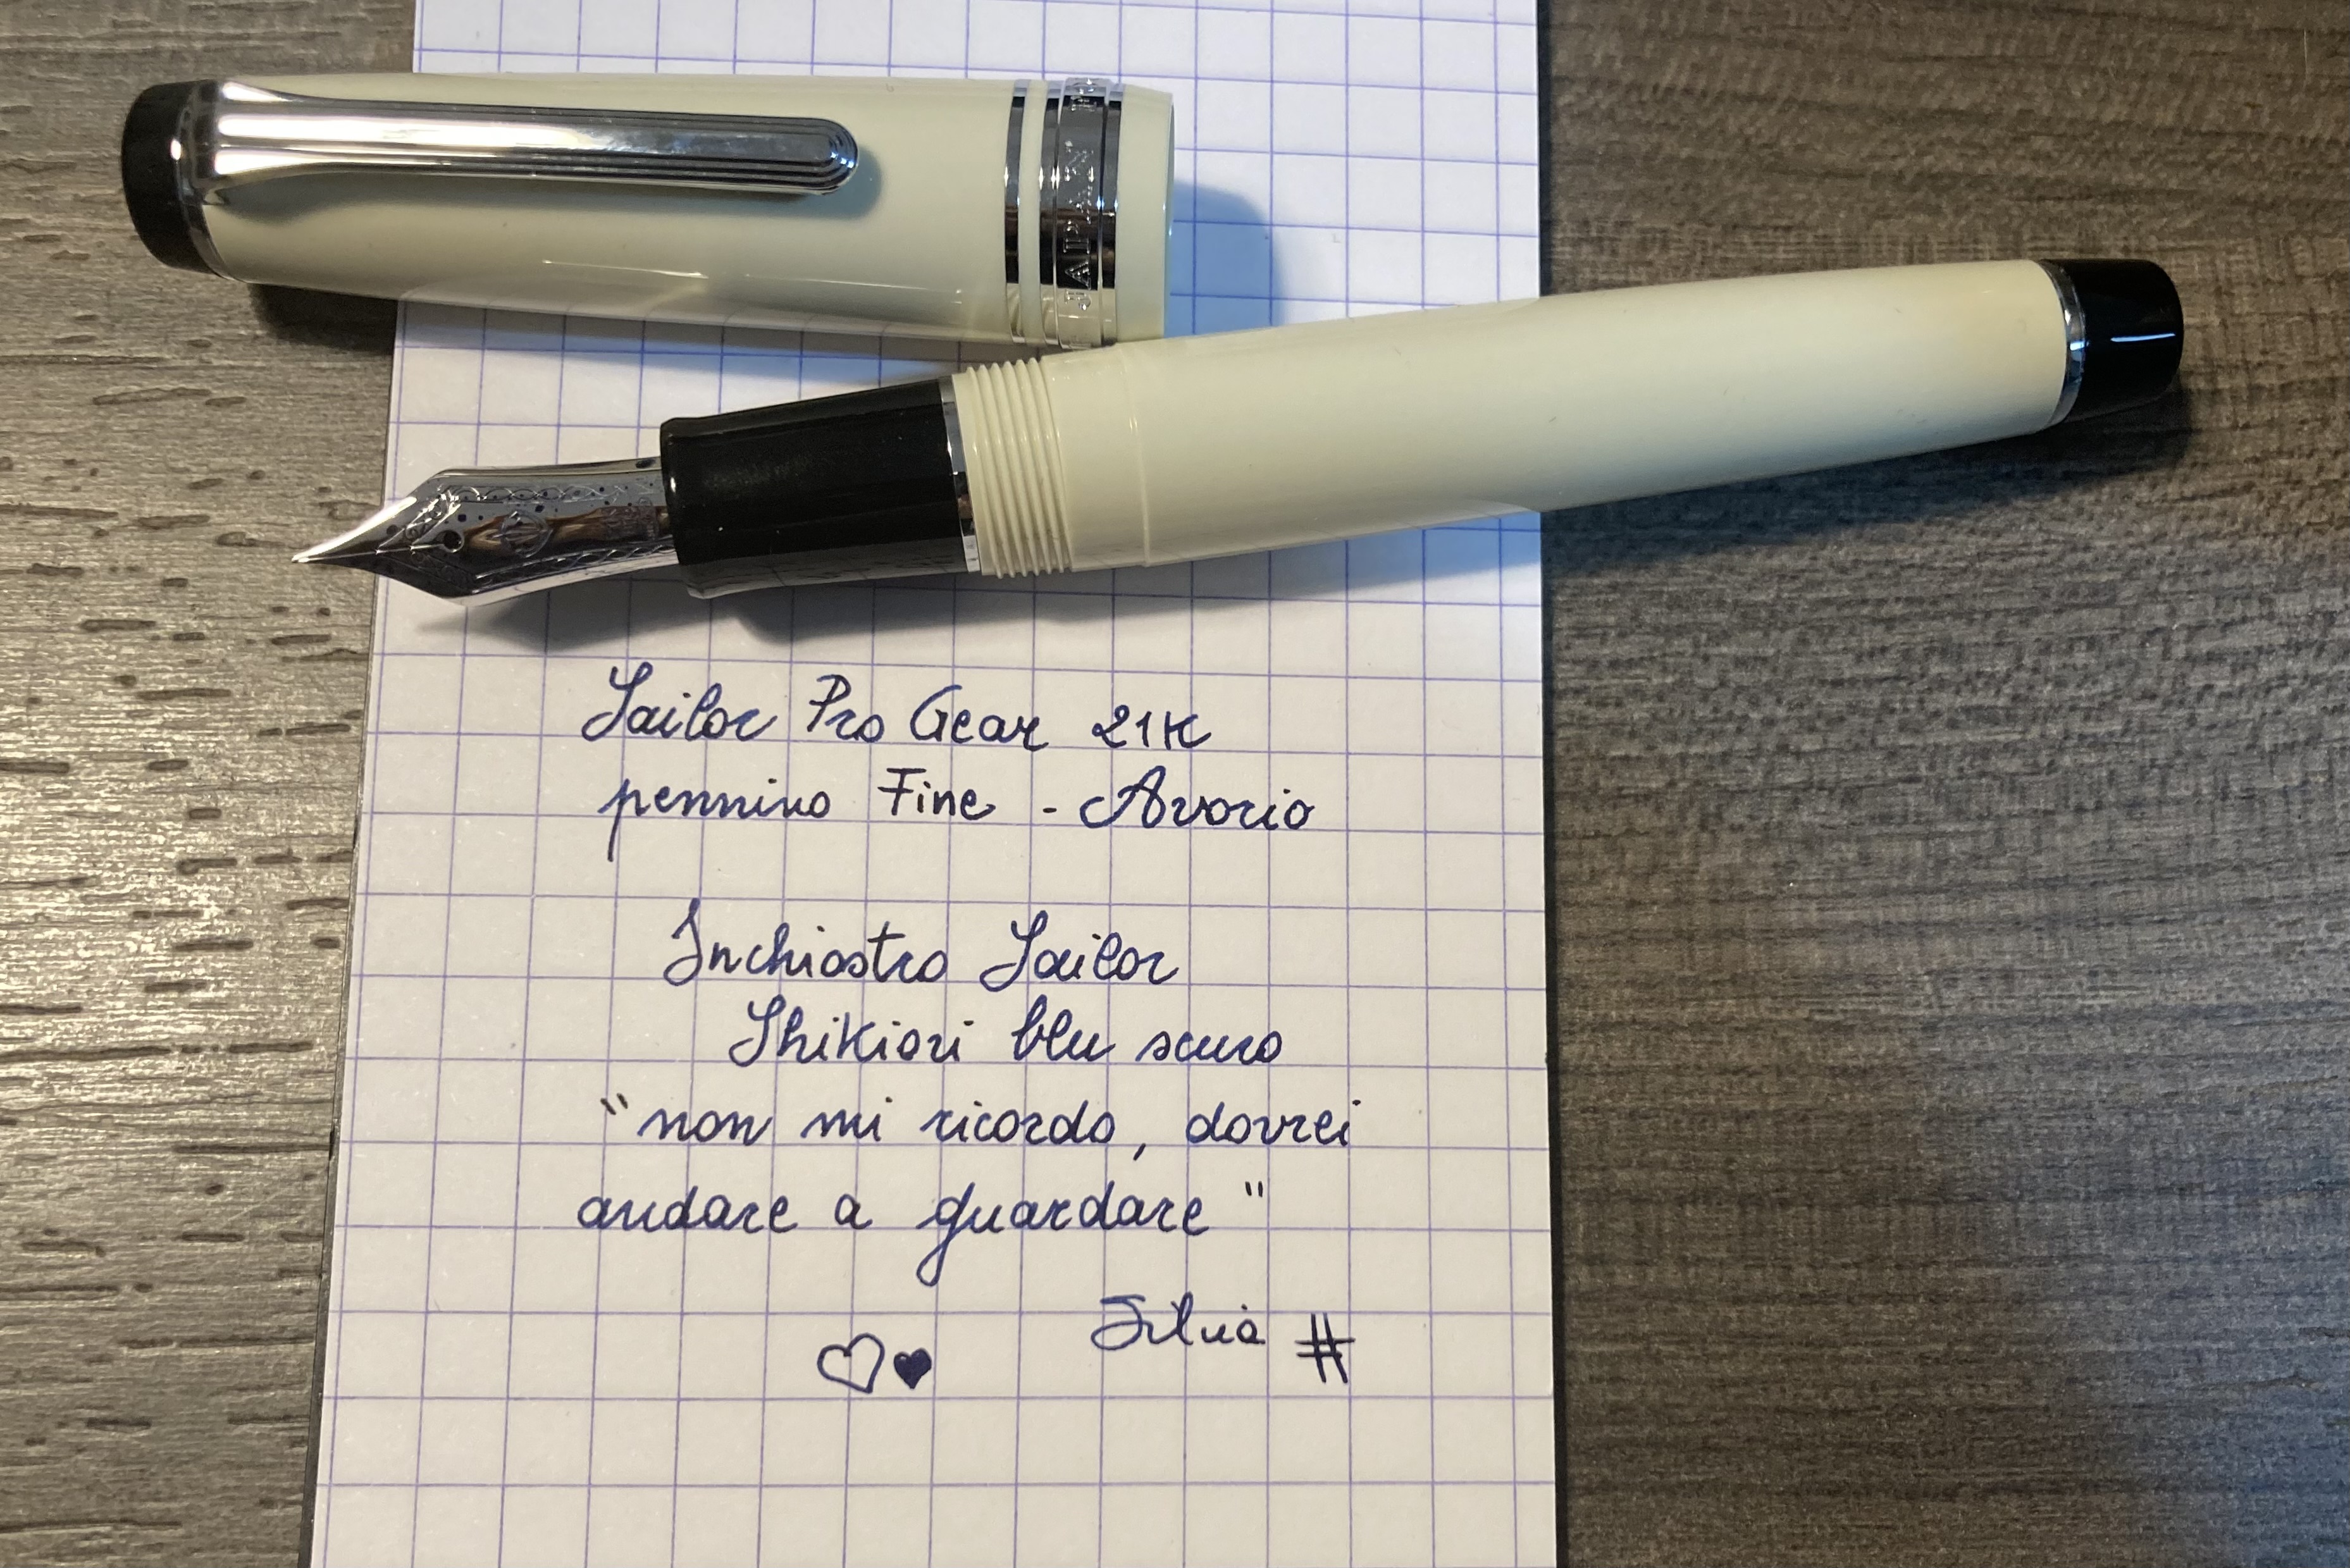 JAPAN
Sailor Pro Gear 21K
pennino Fine - Avorio
Inchiostro Sailor
Shikiori blu scuro
"non mi ricordo, dovrei
andare a guardare"
Silvia #